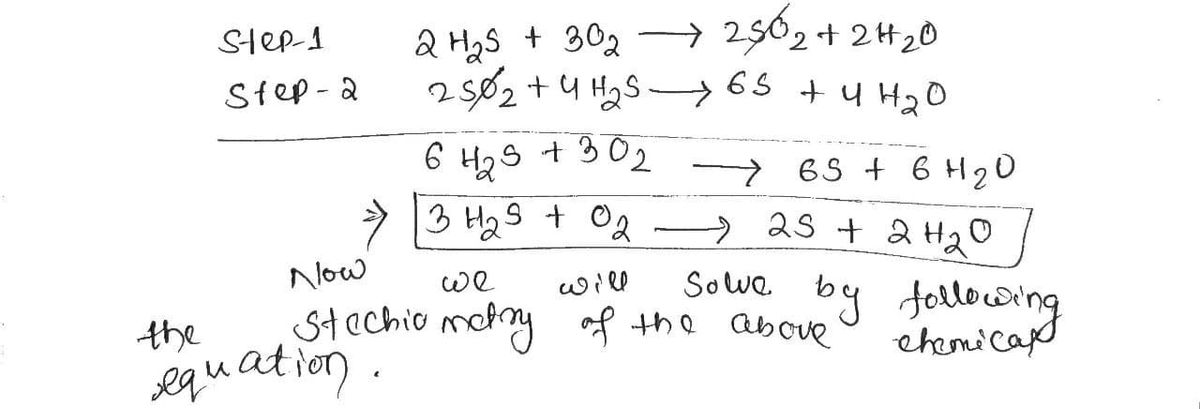 Step-1 2 H₂S + 3O₂ → 2SO₂ + 2H₂O
Step-2 2SO₂ + 4 H₂S → 6S + 4 H₂O
6 H₂S + 3O₂ → 6S + 6 H₂O
⇒ 3 H₂S + O₂ → 2S + 2 H₂O
Now we will Solve by following
the stachiometry of the above chemical
equation.